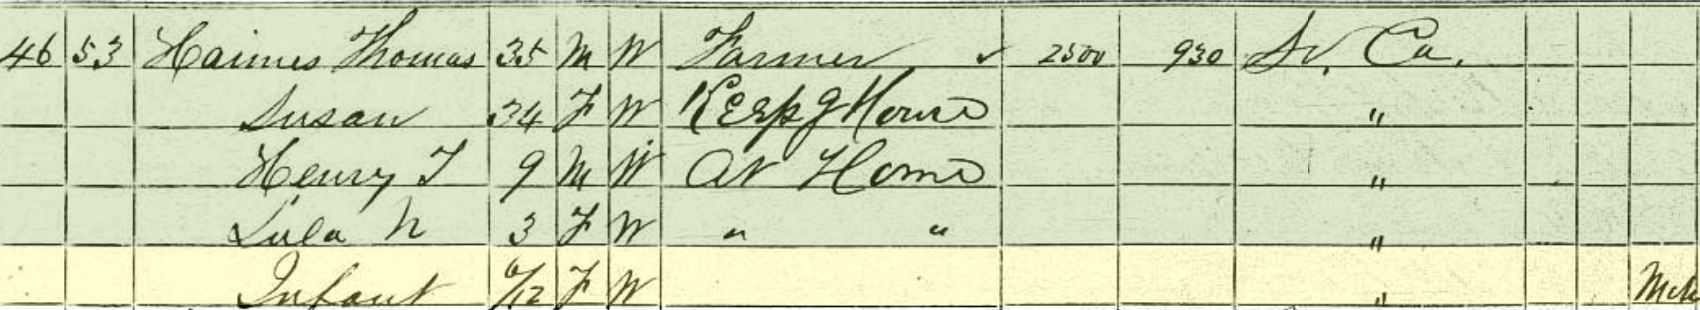 46 53 Haimes Thomas 35 M W Farmer ✓ 2500 930 So. Ca.
Susan 34 F W Keepg House "
Henry T 9 M W At Home "
Lula N 3 F W " " "
Infant 6/12 F W "